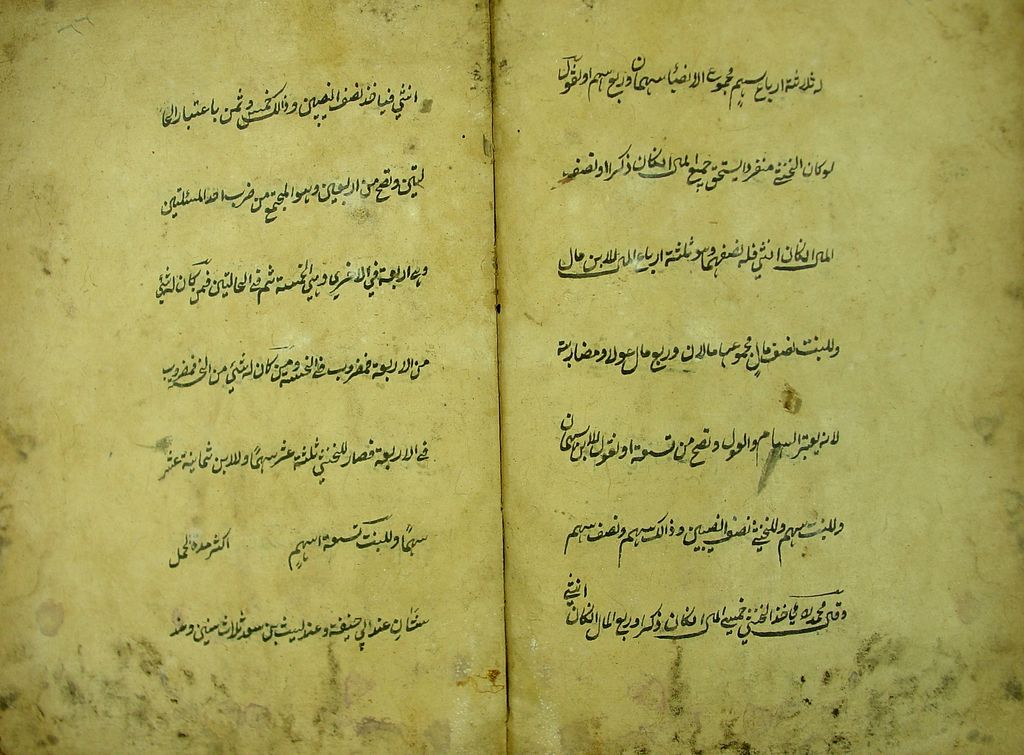 له ثلاثة ارباع سهم مجموع الانصباء سهمان وربع سهم او نقول
لو كان الخنثى منفردا يستحق جميع المال ان كان ذكرا او نصف
المال ان كان انثى فله نصفهما وهو ثلثة ارباع المال للابن مال
وللبنت نصف مال مجموعها مالان وربع مال عولا ومضاربة
لانه يعتبر السهام والعول وتصح من تسعة او نقول للابن سهمان
وللبنت سهم وللخنثى نصف النصيبين وذلك سهم ونصف سهم
وقال محمد رح ياخذ الخنثى خمسي المال ان كان ذكرا وربع المال ان كان انثى
انثى فياخذ نصف النصيبين وذلك خمس وثمن باعتبار الحا
لتين وتصح من اربعين وهو المجتمع من ضرب احد المسئلتين
وهي اربعة في الاخرى وهي الخمسة ثم في الحالتين فمن كان له شئ
من الاربعة فمضروب في الخمسة ومن كان له شئ من الخمسة فمضروب
في الاربعة فصار للخنثى ثلثة عشر سهما وللابن ثمانية عشر
سهما وللبنت تسعة اسهم اكثر مدة الحمل
سنتان عند ابي حنيفة وعند ليث بن سعد ثلاث سنين وعند